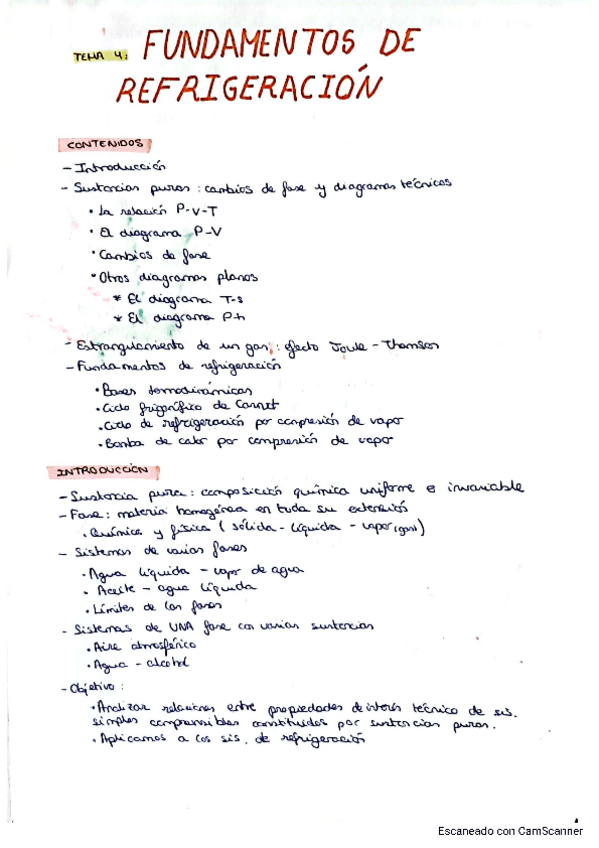 TEMA 4: FUNDAMENTOS DE
REFRIGERACIÓN
CONTENIDOS
- Introducción
- Sustancias puras: cambios de fase y diagramas técnicos
• La relación P-V-T
• El diagrama P-V
• Cambios de fase
• Otros diagramas planos
* El diagrama T-s
* El diagrama P-h
- Estrangulamiento de un gas: efecto Joule - Thomson
- Fundamentos de refrigeración
• Bases termodinámicas
• Ciclo frigorífico de Carnot
• Ciclo de refrigeración por compresión de vapor
• Bomba de calor por compresión de vapor
INTRODUCCIÓN
- Sustancia pura: composición química uniforme e invariable
- Fase: materia homogénea en toda su extensión
• Química y física (sólida - líquida - vapor (gas))
- Sistemas de varias fases
• Agua líquida - vapor de agua
• Aceite - agua líquida
• Límites de las fases
- Sistemas de UNA fase con varias sustancias
• Aire atmosférico
• Agua - alcohol
- Objetivo:
• Analizar relaciones entre propiedades de interés técnico de sis.
simples compresibles constituidos por sustancias puras.
• Aplicarnos a los sis. de refrigeración
Escaneado con CamScanner